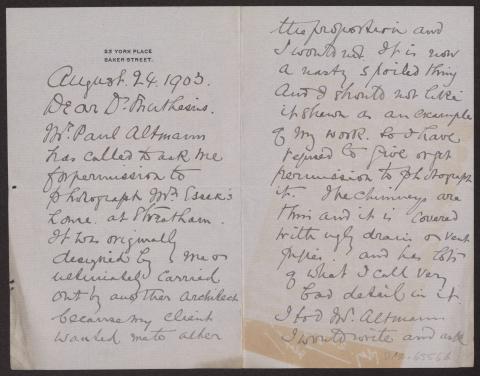 23 YORK PLACE
BAKER STREET.
August. 24. 1903.
Dear Dr. Muthesius.
Mr. Paul Altmann
has called to ask me
for permission to
photograph Mr. Essex's
home. at Streatham.
It was originally
designed by me or
ultimately carried
out by another Architect
because my client
wanted me to alter
the proportion and
I would not. It is now
a nasty spoiled thing
And I should not like
it shewn as an example
of my work. So I have
refused to give or get
permission to photograph
it. The chimneys are
thin and it is covered
with ugly drain or vent
pipes and has lots
of what I call very
bad detail in it.
I told Mr. Altmann
I would write and ask